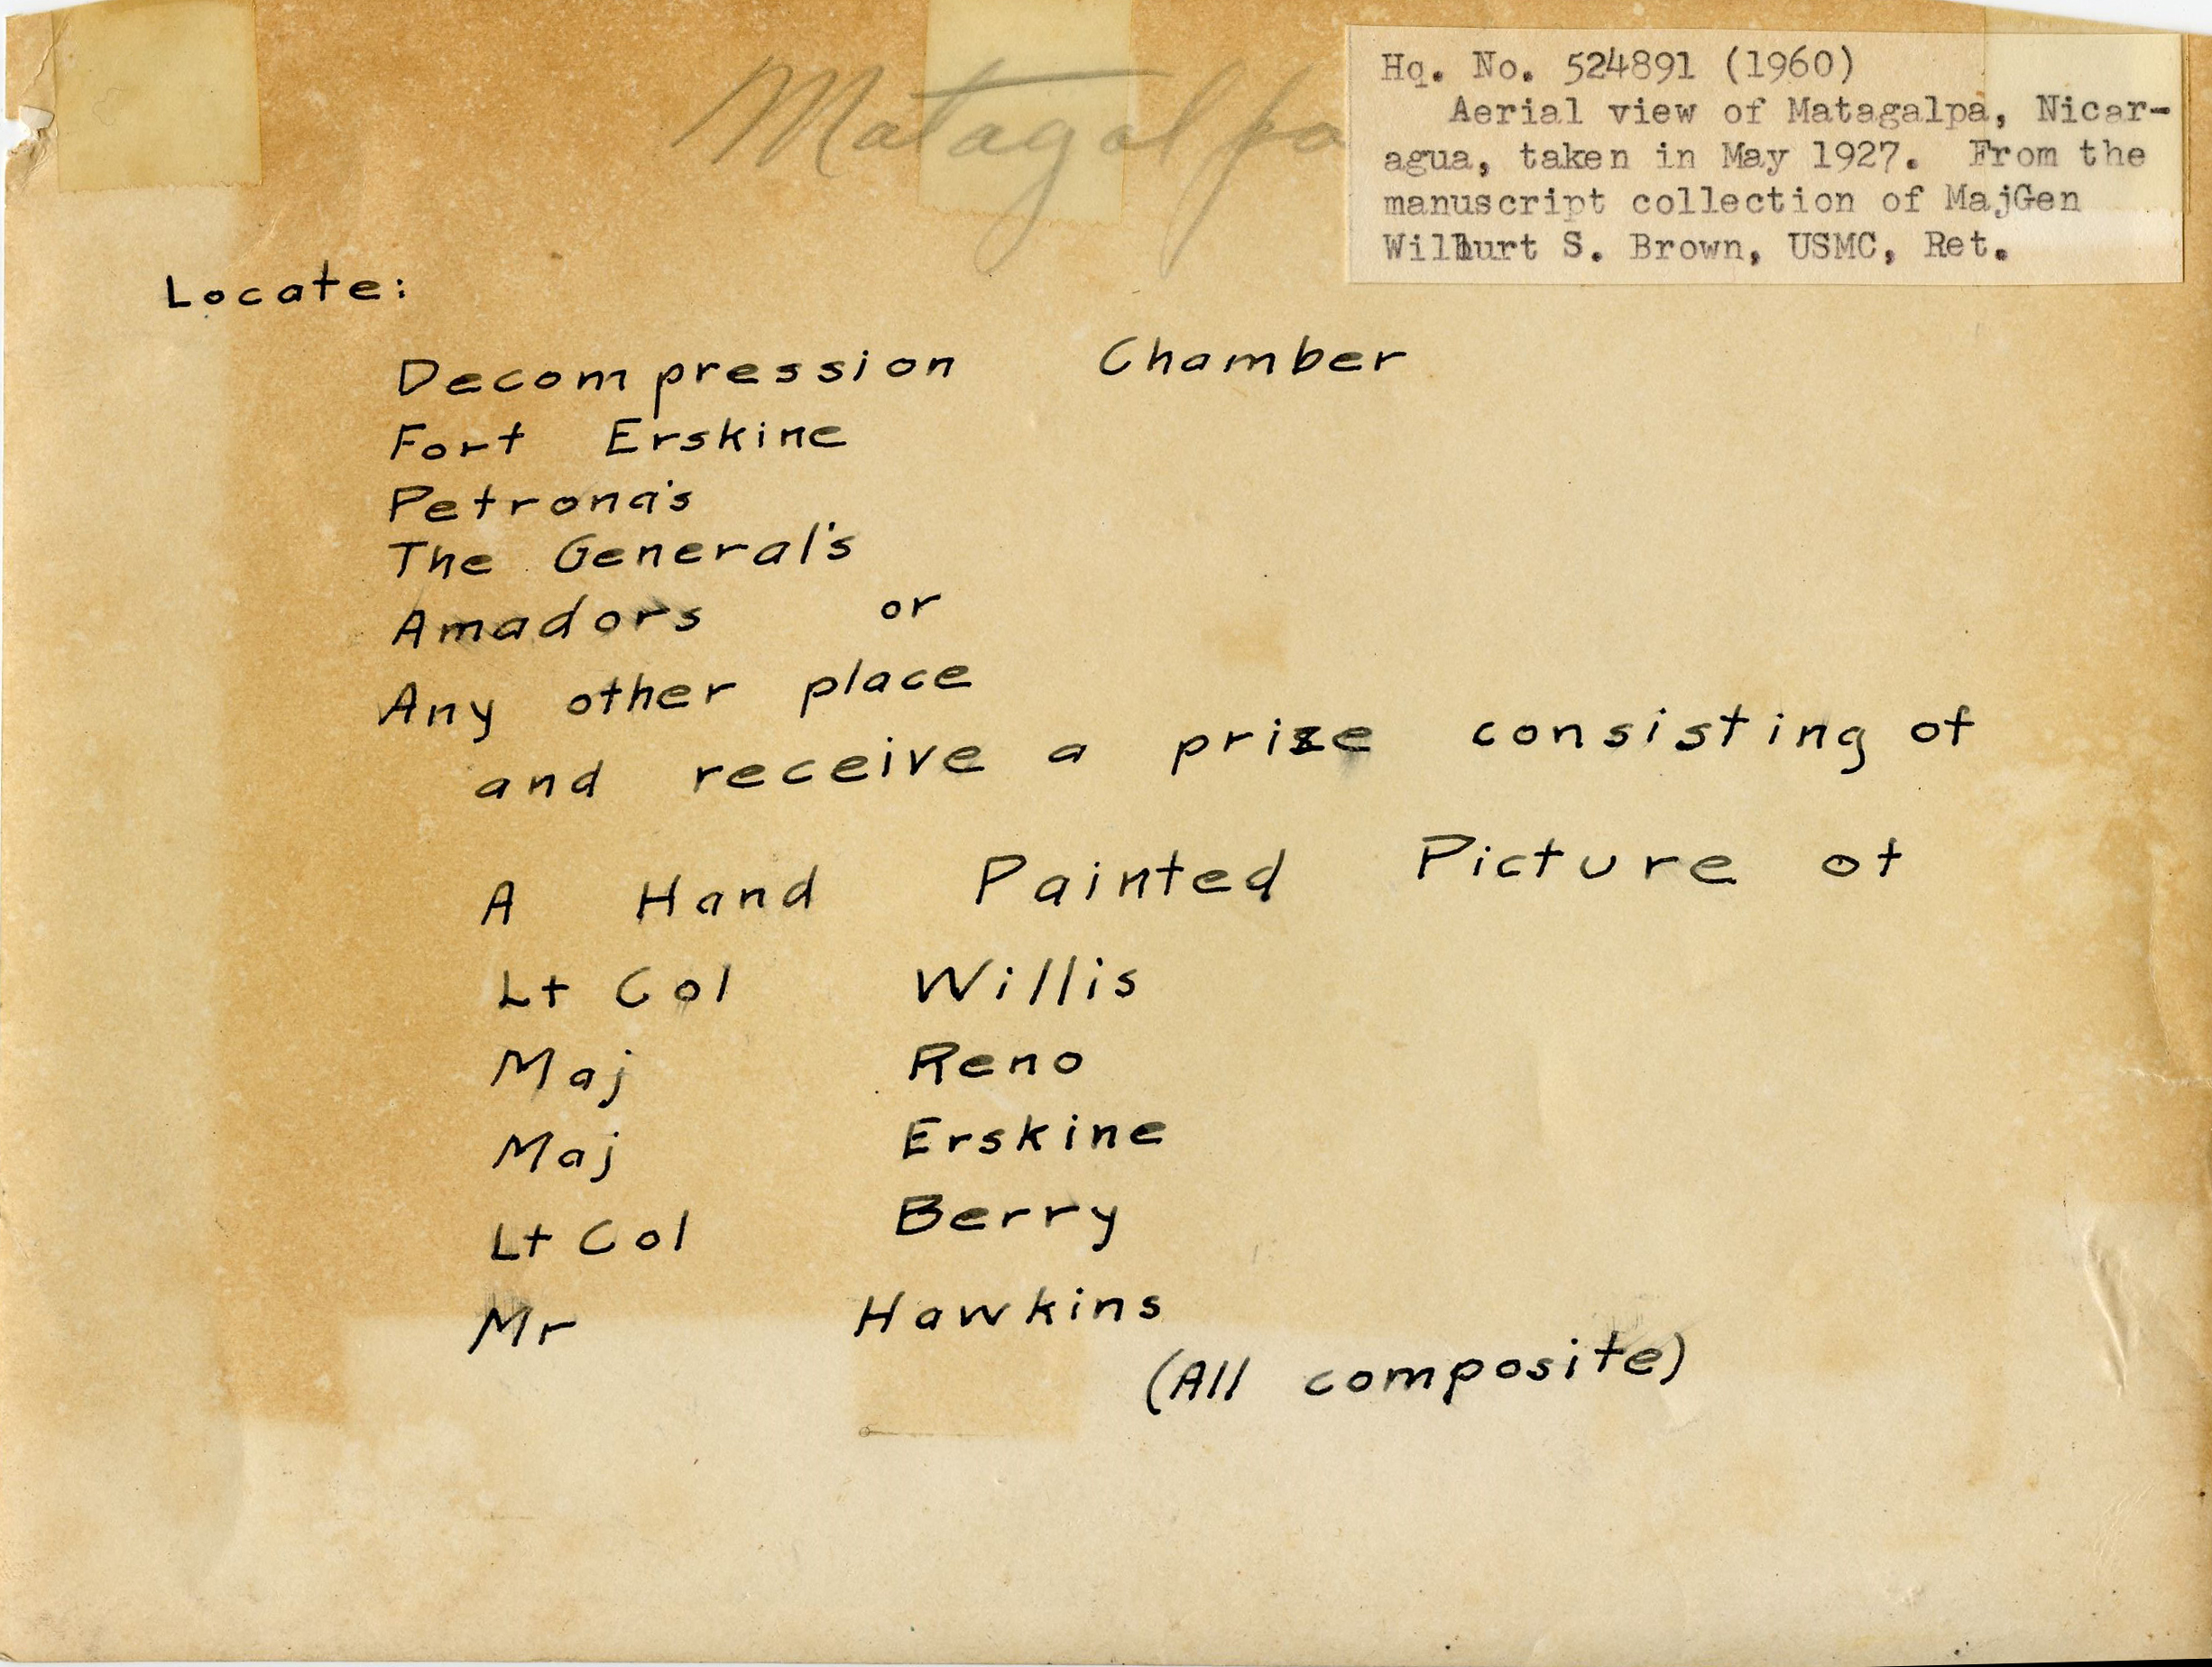 Matagalpa
Hq. No. 524891 (1960)
Aerial view of Matagalpa, Nicar-
agua, taken in May 1927. From the
manuscript collection of MajGen
Wilburt S. Brown, USMC, Ret.
Locate:
Decompression Chamber
Fort Erskine
Petrona's
The General's
Amadors or
Any other place
and receive a prize consisting of
A Hand Painted Picture of
Lt Col Willis
Maj Reno
Maj Erskine
Lt Col Berry
Mr Hawkins
(All composite)